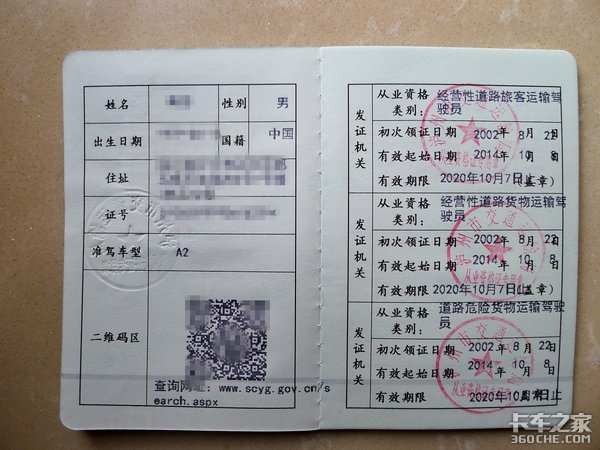 姓名
性别 男
出生日期
国籍 中国
住址
证号
准驾车型 A2
二维码区
查询网址：www.scyg.gov.cn/s
earch.aspx
发证机关
从业资格类别: 经营性道路旅客运输驾驶员
初次领证日期 2002年 8月 22日
有效起始日期 2014年 10月 8日
有效期限 2020年10月7日止
(盖章)
发证机关
从业资格类别: 经营性道路货物运输驾驶员
初次领证日期 2002年 8月 22日
有效起始日期 2014年 10月 8日
有效期限 2020年10月7日止
(盖章)
发证机关
从业资格类别: 道路危险货物运输驾驶员
初次领证日期 2002年 8月 22日
有效起始日期 2014年 10月 8日
有效期限 2020年10月7日止
从业资格证专用章
卡车之家
360CHE.COM